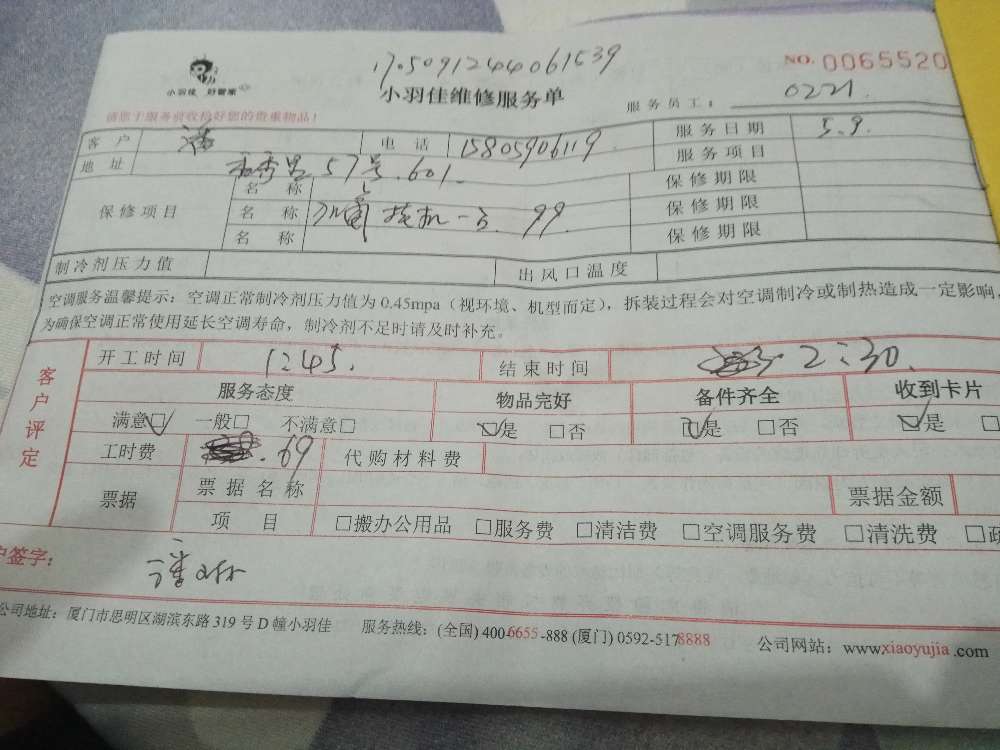 1705091244061539
NO. 0065520
小羽佳 好管家
小羽佳维修服务单
服务员工： 0221
请您于服务前收拾好您的贵重物品！
客户 潘 电话 15805906119 服务日期 5.9.
地址 秀里 57号.601. 服务项目
保修项目 名称 保修期限
名称 挂机一 99. 保修期限
名称 保修期限
制冷剂压力值 出风口温度
空调服务温馨提示：空调正常制冷剂压力值为0.45mpa（视环境、机型而定），拆装过程会对空调制冷或制热造成一定影响，
为确保空调正常使用延长空调寿命，制冷剂不足时请及时补充。
客户评定
开工时间 1:45. 结束时间 2:30.
服务态度 物品完好 备件齐全 收到卡片
满意☑ 一般□ 不满意□ ☑是 □否 ☑是 □否 ☑是 □
工时费 .69 代购材料费
票据 票据名称 票据金额
项目 □搬办公用品 □服务费 □清洁费 □空调服务费 □清洗费 □疏
户签字：
公司地址：厦门市思明区湖滨东路319号D幢小羽佳 服务热线：(全国) 400-6655-888 (厦门) 0592-5178888 公司网站：www.xiaoyujia.com